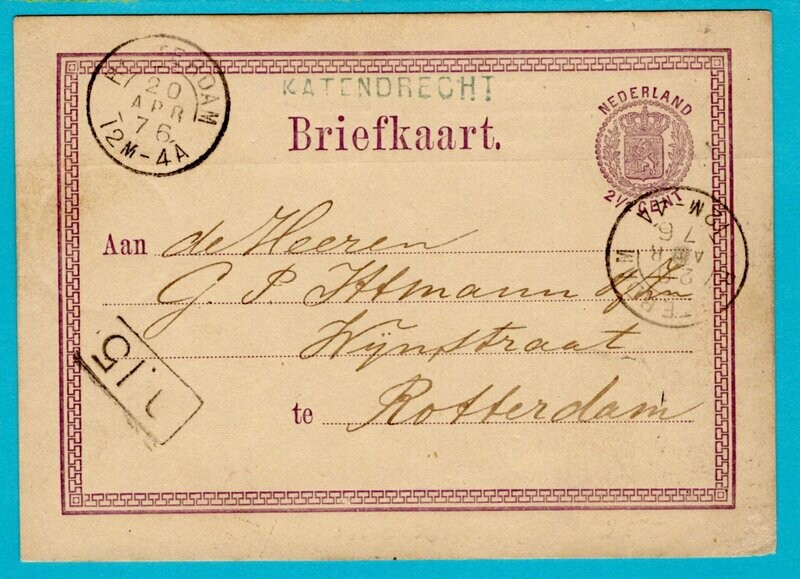 KATENDRECHT
ROTTERDAM
20
APR
76
12M-4A
NEDERLAND
2½ CENT
Briefkaart.
Aan de Heeren
G. P. Ittmann & Zn
Wijnstraat
te Rotterdam
20
APR
76
12M-4A
15